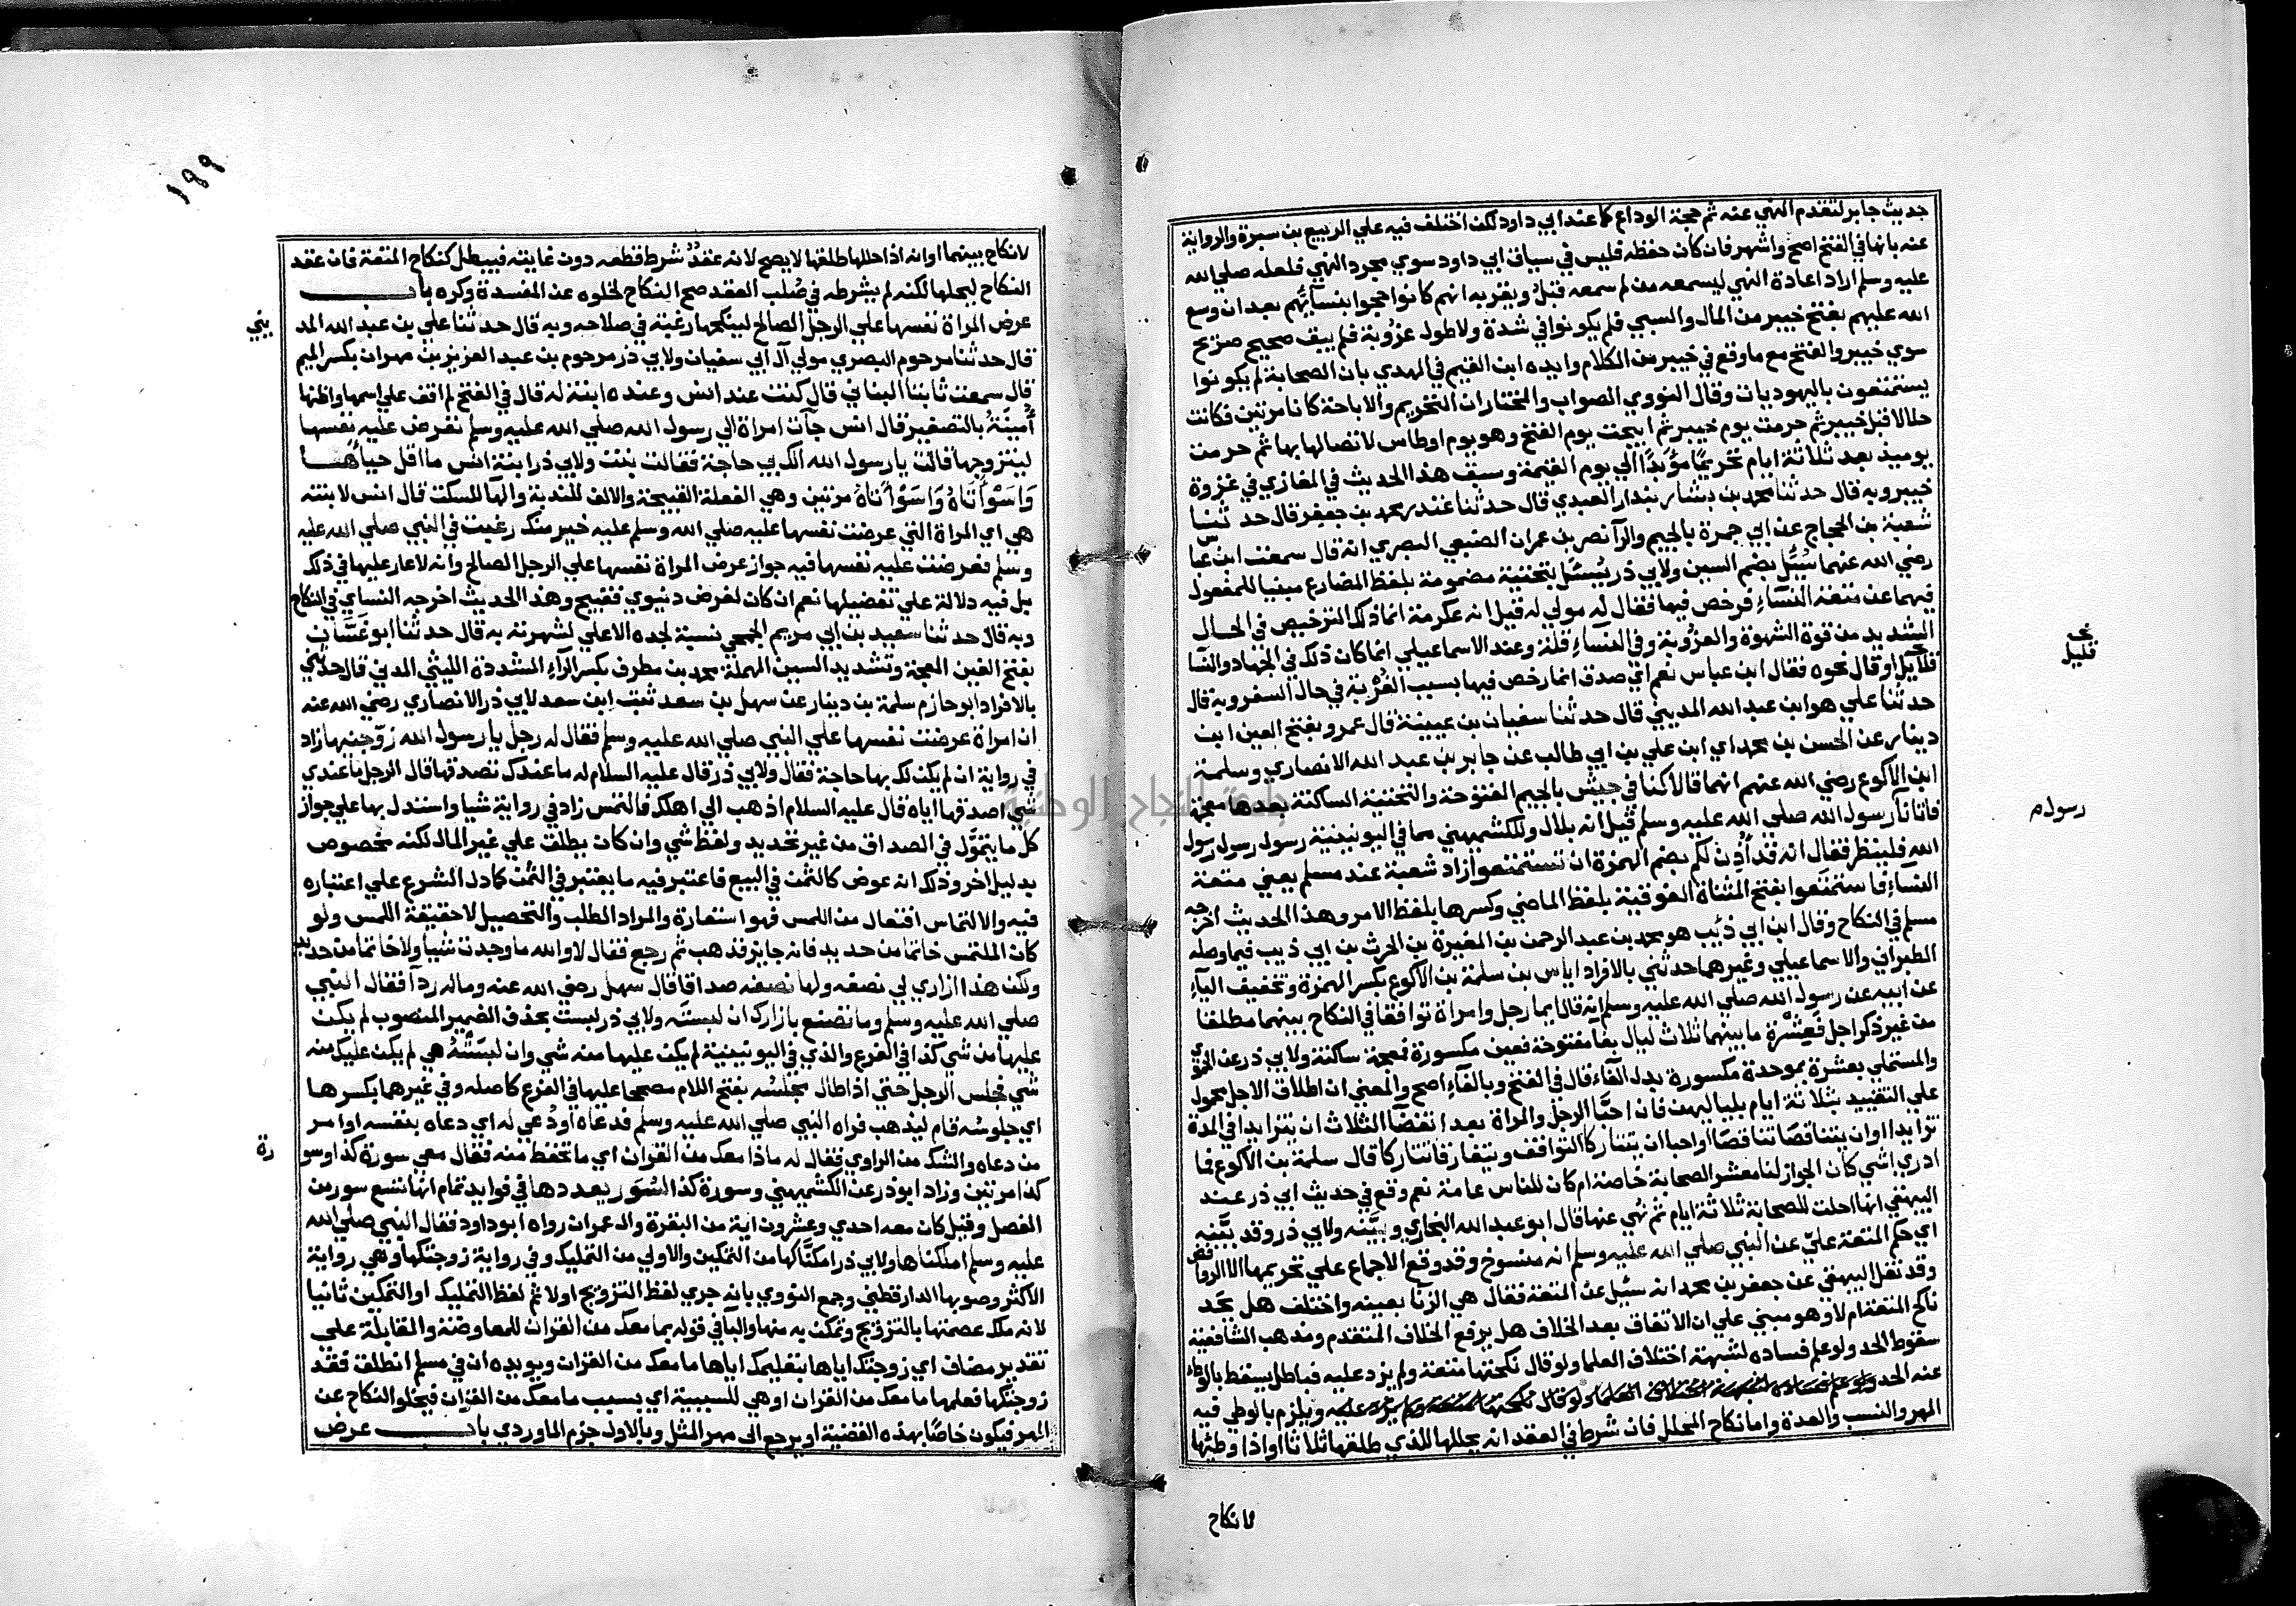 حديث جابر لتقدم النهي عنه ثم حجة الوداع كما عند ابي داود لكن اختلف فيه علي الربيع بن سبرة والرواية
عنه بانها في الفتح اصح واشهر فان كان حفظه فليس في سياق ابي داود سوي مجرد النهي فلعله صلي الله
عليه وسلم اراد اعادة النهي ليسمعه من لم يسمعه قبل ويقربه انهم كانوا حجوا بنسآئهم بعد ان وسع
الله عليهم بفتح خيبر من المال والسبي فلم يكونوا في شدة ولا طول عزوبة فلم يبق صحيح صريح
سوي خيبر والفتح مع ما وقع في خيبر من الكلام وايده ابن القيم في الهدي بان الصحابة لم يكونوا
يستمتعون باليهوديات وقال النووي الصواب والمختار ان التحريم والاباحة كانا مرتين فكانت
حلالا قبل خيبر ثم حرمت يوم خيبر ثم ابيحت يوم الفتح وهو يوم اوطاس لاتصالها بها ثم حرمت
يوميذ بعد ثلاثة ايام تحريمًا مؤبدًا الي يوم القيمة وسبق هذا الحديث في المغازي في غزوة
خيبر وبه قال حدثنا محمد بن بشار بندار العبدي قال حدثنا غندر محمد بن جعفر قال حدثنا
شعبة بن الحجاج عن ابي جمرة بالجيم والرآ نصر بن عمران الضبعي البصري انه قال سمعت ابن عباس
رضي الله عنهما سُئِل بضم السين ولابي ذر يُسئل بتحتية مضمومة بلفظ المضارع مبنيا للمفعول
فيهما عن متعة النسآء فرخص فيها فقال له مولي له قيل انه عكرمة انما ذلك الترخيص في الحال
الشديد من قوة الشهوة والعزوبة وفي النسآء قلة وعند الاسماعيلي انما كان ذلك في الجهاد والنسا
قلآيل او قال نحوه فقال ابن عباس نعم اي صدق انما رخص فيها بسبب العزبة في حال السفر وبه قال
حدثنا علي هو ابن عبد الله المديني قال حدثنا سفيان بن عيينة قال عمرو بفتح العين ابن
دينار عن الحسن بن محمد اي ابن علي بن ابي طالب عن جابر بن عبد الله الانصاري وسلمة
ابن الاكوع رضي الله عنهم انهما قالا كنا في جيش بالجيم المفتوحة والتحتية الساكنة بعدها معجمة
فاتانا رسول الله صلي الله عليه وسلم قيل انه بلال وللكشميهني مما في اليونينية رسول رسول رسول
الله فلينظر فقال انه قد اُذِن لكم بضم الهمزة ان تستمتعوا زاد شعبة عند مسلم يعني متعة
النساء فاستمتعوا بفتح المثناة الفوقية بلفظ الماضي وكسرها بلفظ الامر وهذا الحديث اخرجه
مسلم في النكاح وقال ابن ابي ذئب هو محمد بن عبد الرحمن بن المغيرة بن الحرث بن ابي ذيب فيما وصله
الطبراني والاسماعيلي وغيرهما حدثني بالافراد اياس بن سلمة بن الاكوع بكسر الهمزة وتخفيف اليآء
عن ابيه عن رسول الله صلي الله عليه وسلم انه قال ايما رجل وامراة توافقا في النكاح بينهما مطلقا
من غير ذكر اجل فعشرة ما بينهما ثلاث ليال بفآ مفتوحة فعين مكسورة فمعجمة ساكنة ولابي ذر عن الحموي
والمستملي بعشرة بموحدة مكسورة بدل الفآء قال في الفتح وبالفآء اصح والمعني ان اطلاق الاجل محمول
علي التقييد بثلاثة ايام بلياليهن فان احبا الرجل والمراة بعد انقضآ الثلاث ان يتزايدا في المدة
تزايدا او ان يتناقصا تناقصا او احبا ان يتتاركا التوافق ويتفارقا تتاركا قال سلمة بن الاكوع فما
ادري اشي كان الجواز لنا معشر الصحابة خاصة ام كان للناس عامة نعم وقع في حديث ابي ذر عند
البيهقي انها احلت للصحابة ثلاثة ايام ثم نهي عنها قال ابو عبد الله البخاري وبينه ولابي ذر وقد بيَّنه
اي حكم المتعة عليّ عن النبي صلي الله عليه وسلم انه منسوخ وقد وقع الاجماع علي تحريمها الا الروافض
وقد نقل البيهقي عن جعفر بن محمد انه سئل عن المتعة فقال هي الزنا بعينه واختلف هل يحد
ناكح المتعة ام لا وهو مبني علي ان الاتفاق بعد الخلاف هل يرفع الخلاف المتقدم ومذهب الشافعية
سقوط الحد ولو علم فساده لشبهة اختلاف العلما ولو قال نكحتها متعة ولم يزد عليه فباطل يسقط بالوطء
عنه الحد ولو علم فساده لشبهة اختلاف العلما ولو قال نكحتها متعة ولم يزد عليه ويلزم بالوطي فيه
المهر والنسب والعدة واما نكاح المحلل فان شرط في العقد انه يحللها للذي طلقها ثلاثا او اذا وطئها
نخـ
قليل
رسولم
لا نكاح
١٩٩
لا نكاح بينهما او انه اذا حللها طلقها لا يصح لانه عقدٌ شرط قطعه دون غايته فيبطل كنكاح المتعة فان عقد
النكاح ليحلها لكنه لم يشرطه في صُلب العقد صح النكاح لخلوه عن المفسدة وكره باب
عرض المراة نفسها علي الرجل الصالح لينكحها رغبة في صلاحه وبه قال حدثنا علي بن عبد الله المد
يني
قال حدثنا مرحوم البصري مولي آل ابي سفيان ولابي ذر مرحوم بن عبد العزيز بن مهران بكسر الميم
قال سمعت ثابتا البناني قال كنت عند انس وعنده ابنة له قال في الفتح لم اقف علي اسمها واظنها
أُمَيْنَةُ بالتصغير قال انس جآت امراة الي رسول الله صلي الله عليه وسلم تعرض عليه نفسها
ليتزوجها قالت يا رسول الله الك بي حاجة فقالت بنت ولابي ذر ابنة انس ما اقل حيآءها
وَاسَوْأتَاهُ وَاسَوْأتَاهُ مرتين وهي الفعلة القبيحة والالف للندبة والهآ للسكت قال انس لابنته
هي اي المراة التي عرضت نفسها عليه صلي الله وسلم عليه خير منك رغبت في النبي صلي الله عليه
وسلم فعرضت عليه نفسها فيه جواز عرض المراة نفسها علي الرجل الصالح وانه لا عار عليها في ذلك
بل فيه دلالة علي تفضيلها نعم ان كان لغرض دنيوي فقبيح وهذا الحديث اخرجه النساي في النكاح
وبه قال حدثنا سعيد بن ابي مريم الجمحي نسبة لجده الاعلي لشهرته به قال حدثنا ابو غسَّان
بفتح الغين المعجمة وتشديد السين المهملة محمد بن مطرف بكسر الرآء المشددة الليثي المدني قال حدثني
بالافراد ابو حازم سلمة بن دينار عن سهل بن سعد ثبت ابن سعد لابي ذر الانصاري رضي الله عنه
ان امراة عرضت نفسها علي النبي صلي الله عليه وسلم فقال له رجل يا رسول الله زوّجنيها زاد
في رواية ان لم يكن لك بها حاجة فقال ولابي ذر قال عليه السلام له ما عندك تصدقها قال الرجل ما عندي
شي اصدقها اياه قال عليه السلام اذهب الي اهلك فالتمس زاد في رواية شيا واستدل بها علي جواز
كل ما يتموَّل في الصداق من غير تحديد ولفظ شي وان كان يطلق علي غير المال لكنه مخصوص
بدليل اخر وذلك انه عوض كالثمن في البيع فاعتبر فيه ما يعتبر في الثمن كما دل الشرع علي اعتباره
فيه والالتماس افتعال من اللمس فهو استعارة والمراد الطلب والتحصيل لا حقيقة اللمس ولو
كان الملتمس خاتما من حديد فانه جايز فذهب ثم رجع فقال لا والله ما وجدت شيا ولا خاتما من حديد
ولكن هذا ازاري لي نصفه ولها نصفه صداقا قال سهل رضي الله عنه وماله ردآ فقال النبي
صلي الله عليه وسلم وما تصنع بازارك ان لبستَه ولابي ذر لبست بحذف الضمير المنصوب لم يكن
عليها من شي كذا في الفرع والذي في اليونينية لم يكن عليها منه شي وان لبسَتْهُ هي لم يكن عليك منه
شي فجلس الرجل حتي اذا طال مجلسُه بفتح اللام مصححا عليها في الفرع كاصله وفي غيرهما بكسرها
اي جلوسُه قام ليذهب فراه النبي صلي الله عليه وسلم فدعاه او دُعي له اي دعاه بنفسه او امر
من دعاه والشك من الراوي فقال له ماذا معك من القران اي ما تحفظ منه فقال معي سورة كذا وسو
رة
كذا مرتين وزاد ابو ذر عن الكشميهني وسورة كذا لسُوَر يعددها في فوايد تمام انها تسع سور من
المفصل وقيل كان معه احدي وعشرون اية من البقرة وال عمران رواه ابو داود فقال النبي صلي الله
عليه وسلم املكناها ولابي ذر امكنَّاكها من التمكين والاولي من التمليك وفي رواية زوجتكها وهي رواية
الاكثر وصوبها الدارقطني وجمع النووي بانه جري لفظ التزويج اولا ثم لفظ التمليك او التمكين ثانيا
لانه ملك عصمتها بالتزويج وتمكن به منها والبآ في قوله بما معك من القران للمعاوضة والمقابلة علي
تقدير مضاف اي زوجتك اياها بتعليمك اياها ما معك من القران ويويده ان في مسلم انطلق فقد
زوجتكها فعلمها ما معك من القران او هي للسببية اي بسبب ما معك من القران فيخلوا النكاح عن
المهر فيكون خاصًا بهذه القضية او يرجع الي مهر المثل وبالاول جزم الماوردي باب عرض
جامعة النجاح الوطنية